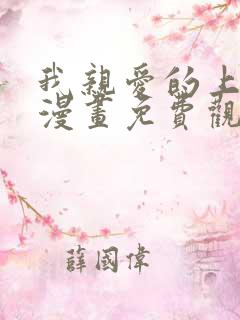 我親愛的上
漫畫免費觀
薛國偉